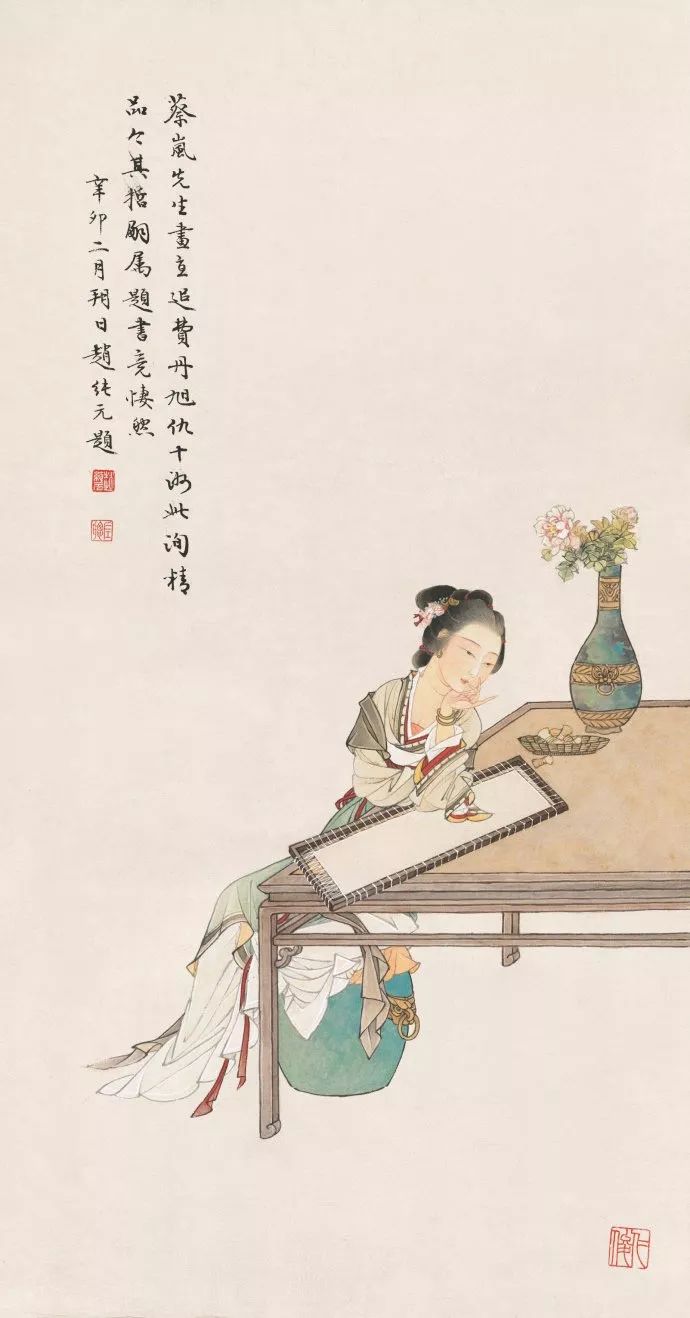 蔡嵐先生畫直追費丹旭仇十洲此洵精
品々其哲嗣属題書竟悽然
辛卯二月朔日趙純元題